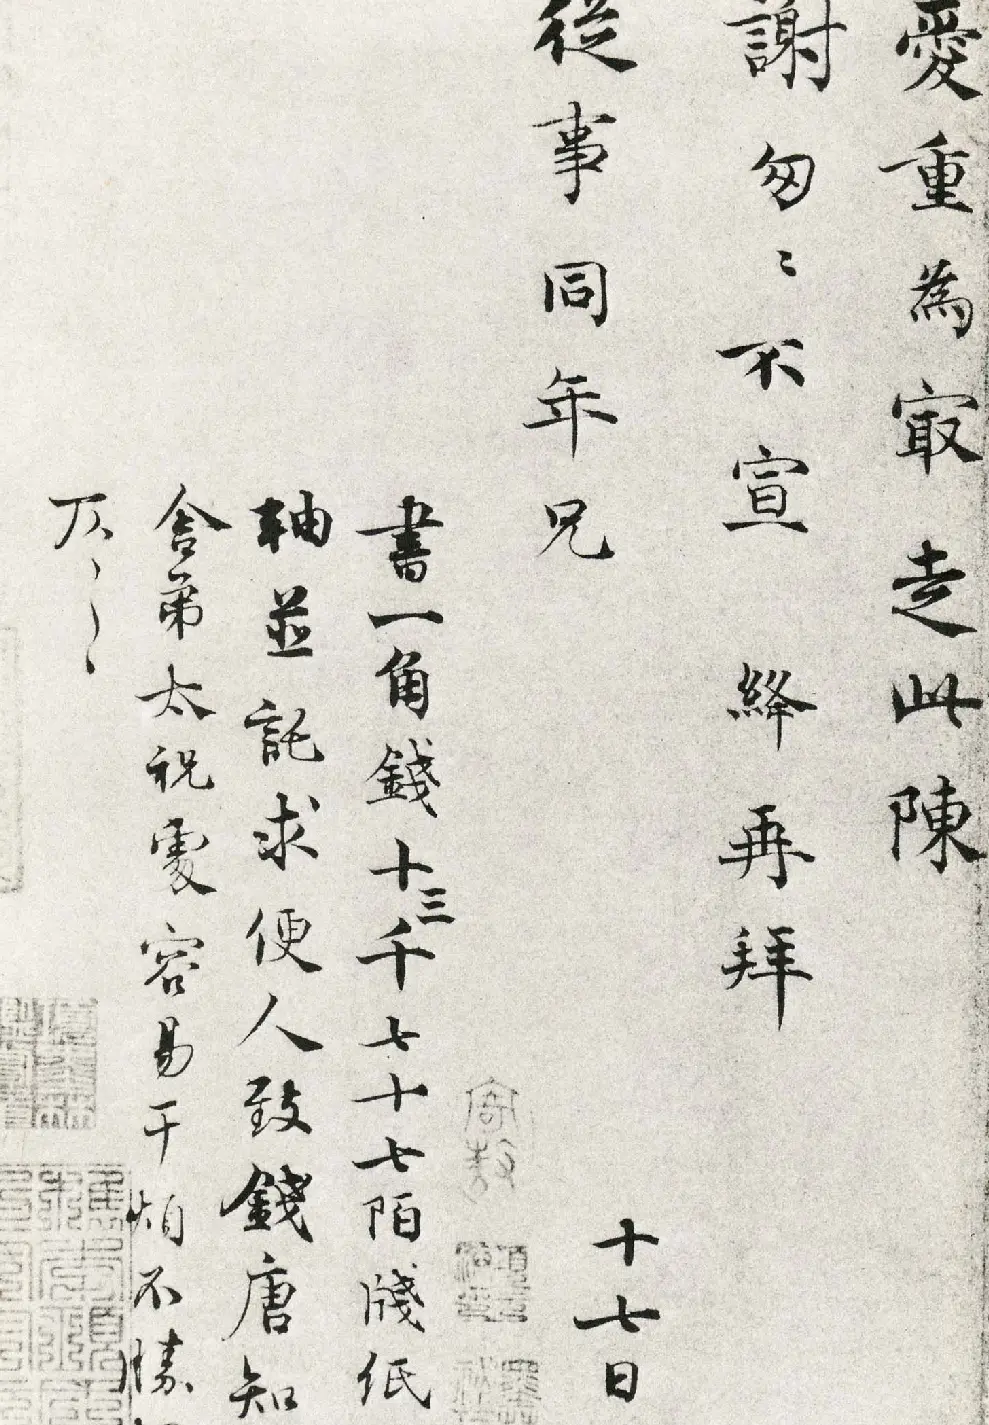 愛重為㝡走此陳
謝匆〻不宣 絳再拜
從事同年兄
十七日
書一角錢十三千七十七陌牋紙
軸並託求便人致錢唐知
舍弟太祝處容易干煩不勝